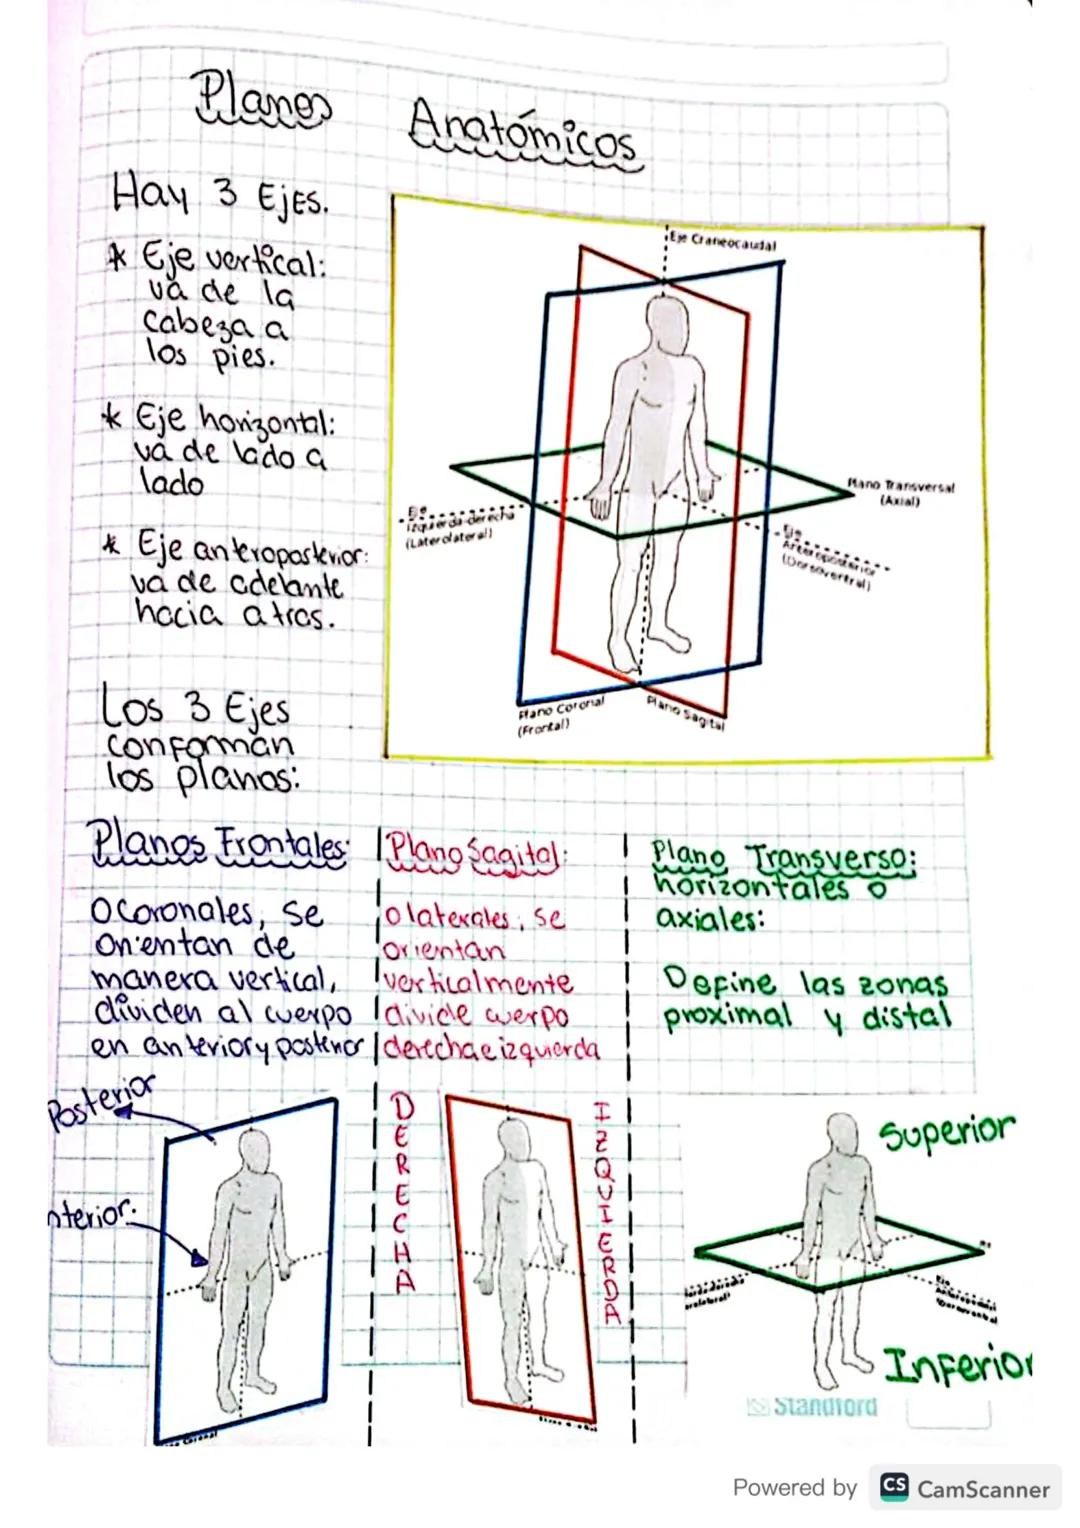 Planos Anatómicos
Hay 3 Ejes.
* Eje vertical:
va de la
cabeza a
los pies.
* Eje horizontal:
va de lado a
lado
* Eje anteroposterior:
va de adelante
hacia atras.
Eje Craneocaudal
Plano Transversal
(Axial)
Eje
Izquierda-derecha
(Laterolateral)
Eje
Anteroposterior
(Dorsoventral)
Plano Coronal
(Frontal)
Plano Sagital
Los 3 Ejes
conforman
los planos:
Planos Frontales:
O Coronales, se
Orientan de
manera vertical,
dividen al cuerpo
en anterior y posterior
Plano Sagital:
o laterales, se
orientan
verticalmente
divide cuerpo
derecha e izquierda
Plano Transverso:
horizontales o
axiales:
Define las zonas
proximal y distal
Posterior
nterior.
DERECHA
IZQUIERDA
Superior
Inferior
Standford
Powered by CS CamScanner